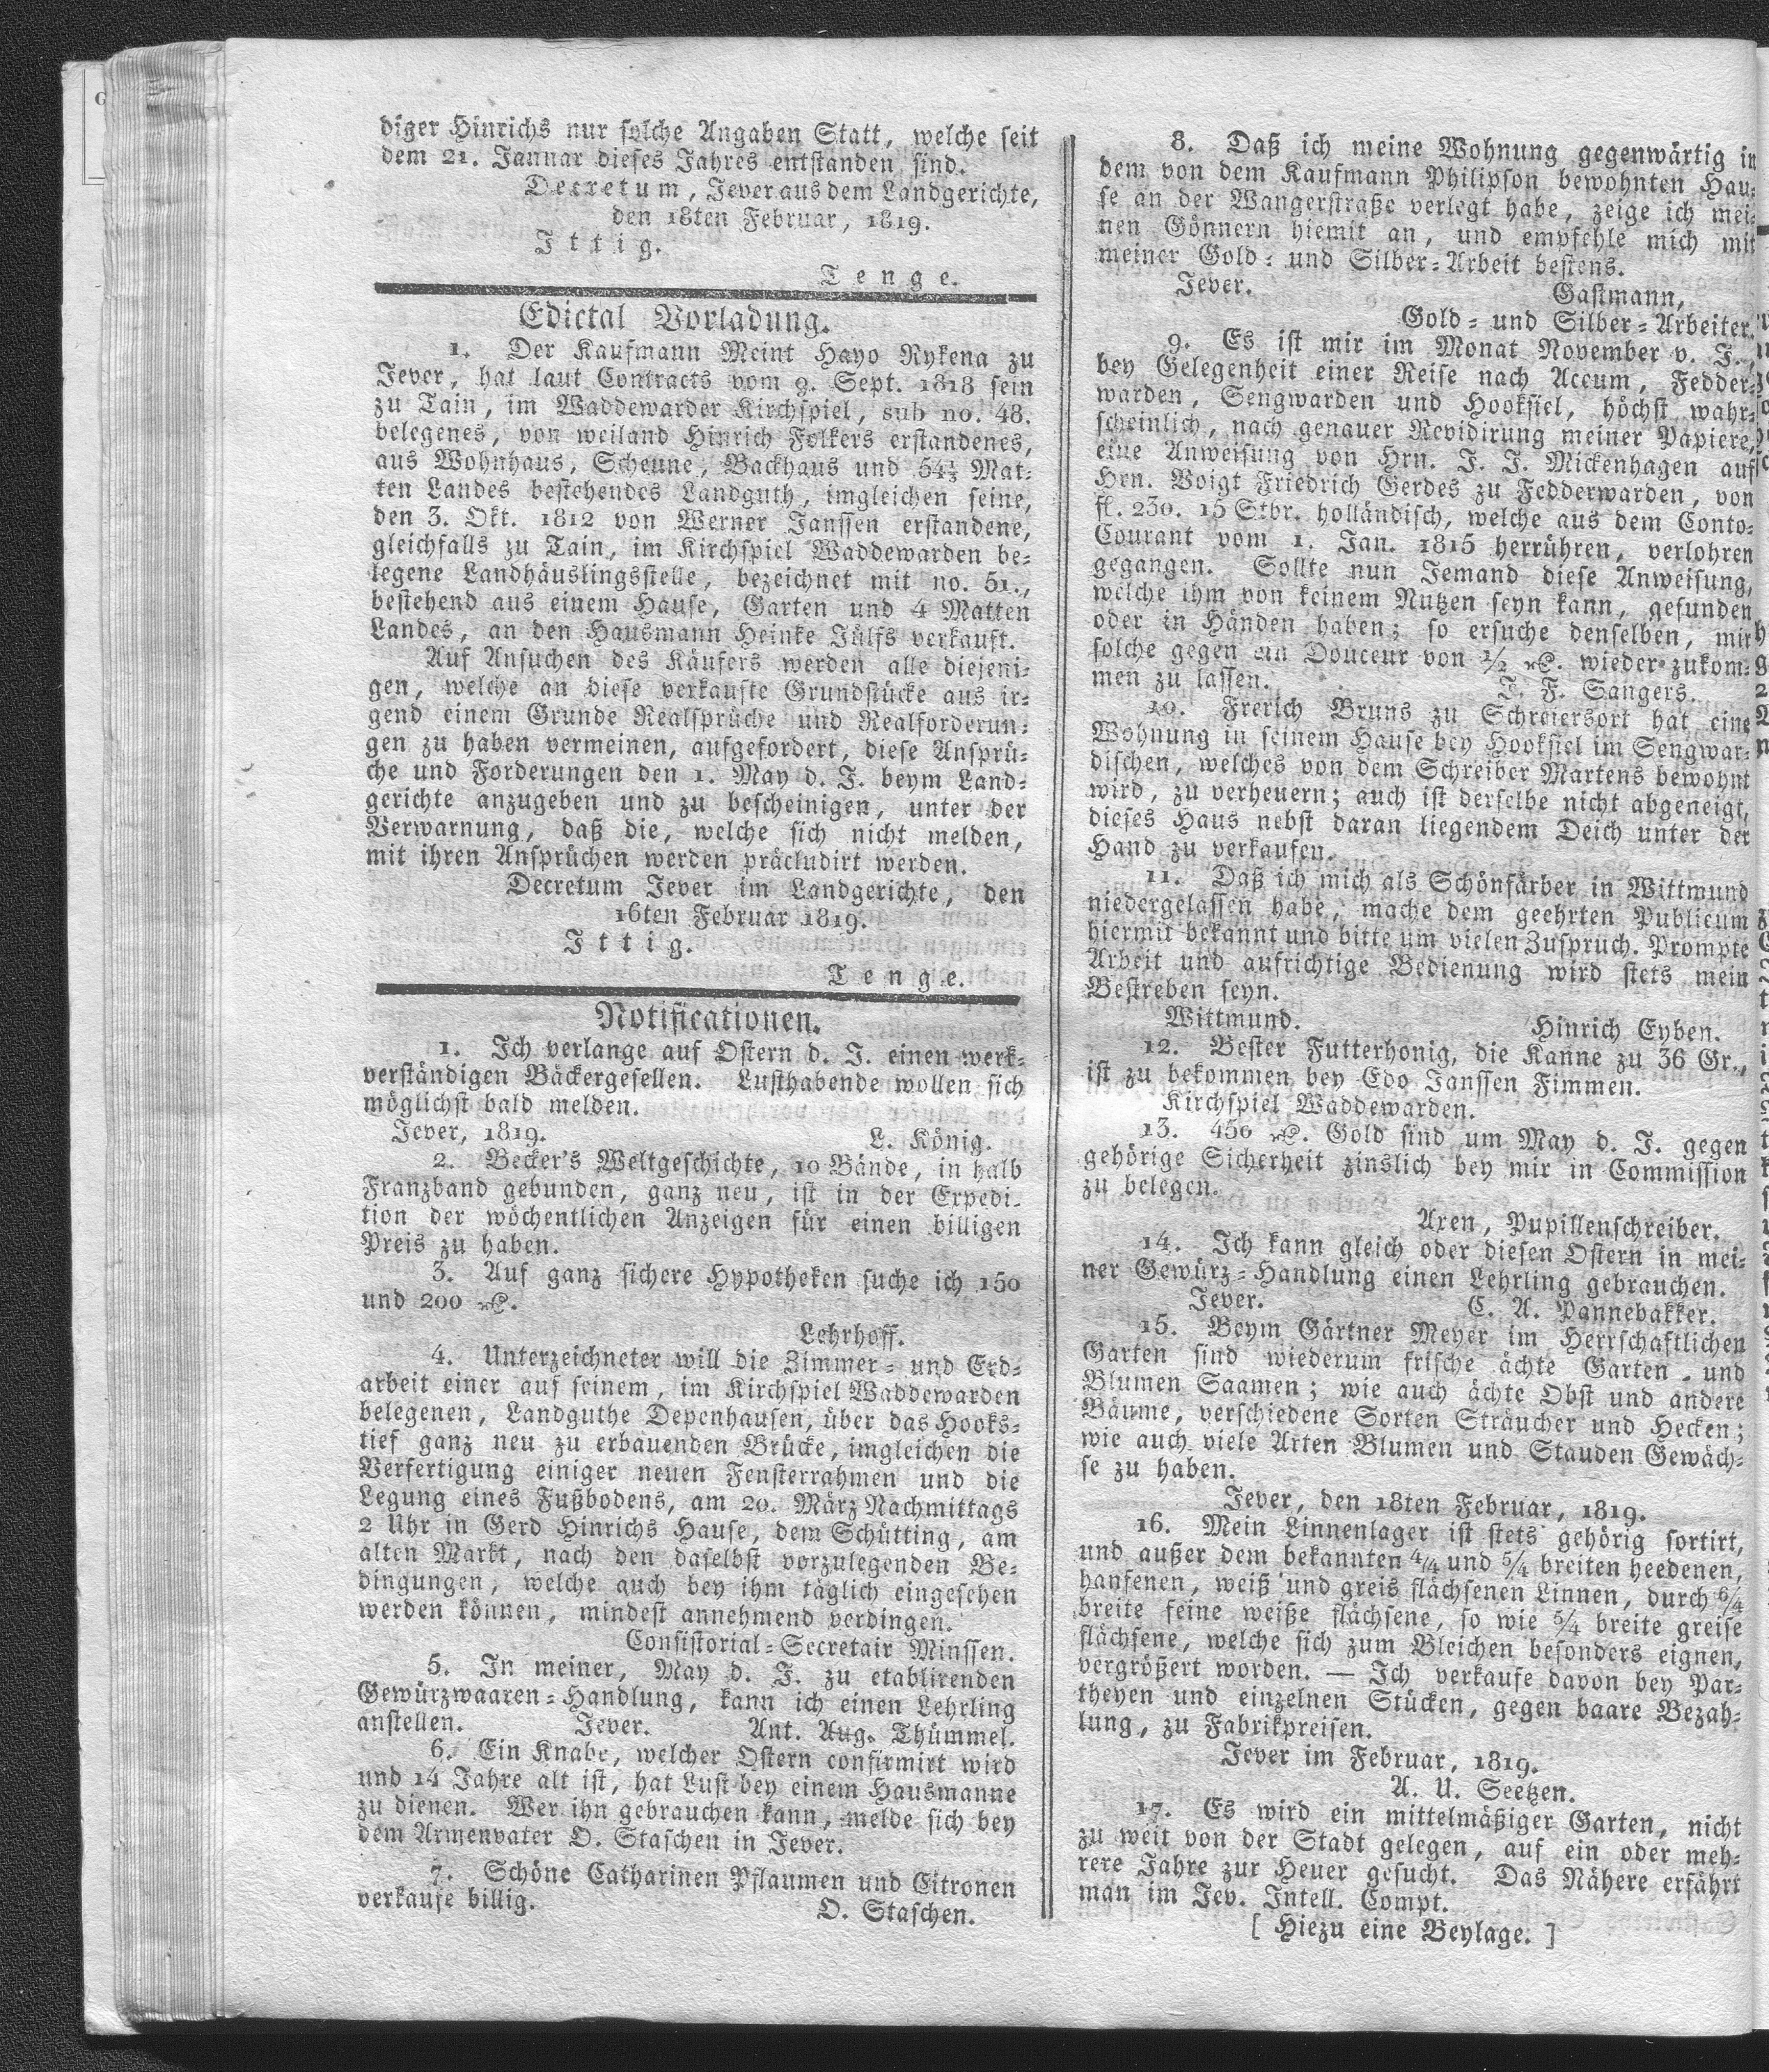 diger Hinrichs nur solche Angaben Statt, welche seit
dem 21. Januar dieses Jahres entstanden sind.
Decretum, Jever aus dem Landgerichte,
den 18ten Februar, 1819.
Ittig.
Tenge.
Edictal Vorladung.
1. Der Kaufmann Meint Hayo Rykena zu
Jever, hat laut Contracts vom 9. Sept. 1818 sein
zu Tain, im Waddewarder Kirchspiel, sub no. 48.
belegenes, von weiland Hinrich Folkers erstandenes,
aus Wohnhaus, Scheune, Backhaus und 54½ Mat-
ten Landes bestehendes Landguth, imgleichen seine,
den 3. Okt. 1812 von Werner Janssen erstandene,
gleichfalls zu Tain, im Kirchspiel Waddewarden be-
legene Landhäuslingsstelle, bezeichnet mit no. 51.,
bestehend aus einem Hause, Garten und 4 Matten
Landes, an den Hausmann Heinke Jülfs verkauft.
Auf Ansuchen des Käufers werden alle diejeni-
gen, welche an diese verkaufte Grundstücke aus ir-
gend einem Grunde Realsprüche und Realforderun-
gen zu haben vermeinen, aufgefordert, diese Ansprü-
che und Forderungen den 1. May d. J. beym Land-
gerichte anzugeben und zu bescheinigen, unter der
Verwarnung, daß die, welche sich nicht melden,
mit ihren Ansprüchen werden präcludirt werden.
Decretum Jever im Landgerichte, den
16ten Februar 1819.
Ittig.
Tenge.
Notificationen.
1. Ich verlange auf Ostern d. J. einen werk-
verständigen Bäckergesellen. Lusthabende wollen sich
möglichst bald melden.
Jever, 1819. L. König.
2. Becker's Weltgeschichte, 10 Bände, in halb
Franzband gebunden, ganz neu, ist in der Expedi-
tion der wöchentlichen Anzeigen für einen billigen
Preis zu haben.
3. Auf ganz sichere Hypotheken suche ich 150
und 200 Rthlr.
Lehrhoff.
4. Unterzeichneter will die Zimmer- und Erd-
arbeit einer auf seinem, im Kirchspiel Waddewarden
belegenen, Landguthe Depenhausen, über das Hooks-
tief ganz neu zu erbauenden Brücke, imgleichen die
Verfertigung einiger neuen Fensterrahmen und die
Legung eines Fußbodens, am 20. März Nachmittags
2 Uhr in Gerd Hinrichs Hause, dem Schütting, am
alten Markt, nach den daselbst vorzulegenden Be-
dingungen, welche auch bey ihm täglich eingesehen
werden können, mindest annehmend verdingen.
Consistorial-Secretair Minssen.
5. In meiner, May d. J. zu etablirenden
Gewürzwaaren-Handlung, kann ich einen Lehrling
anstellen. Jever. Ant. Aug. Thümmel.
6. Ein Knabe, welcher Ostern confirmirt wird
und 14 Jahre alt ist, hat Lust bey einem Hausmanne
zu dienen. Wer ihn gebrauchen kann, melde sich bey
dem Armenvater O. Staschen in Jever.
7. Schöne Catharinen Pflaumen und Citronen
verkaufe billig. O. Staschen.
8. Daß ich meine Wohnung gegenwärtig in
dem von dem Kaufmann Philipson bewohnten Hau-
se an der Wangerstraße verlegt habe, zeige ich mei-
nen Gönnern hiemit an, und empfehle mich mit
meiner Gold- und Silber-Arbeit bestens.
Jever. Gastmann,
Gold- und Silber-Arbeiter.
9. Es ist mir im Monat November v. J.,
bey Gelegenheit einer Reise nach Accum, Fedder-
warden, Sengwarden und Hooksiel, höchst wahr-
scheinlich, nach genauer Revidirung meiner Papiere,
eine Anweisung von Hrn. J. J. Mickenhagen auf
Hrn. Voigt Friedrich Gerdes zu Fedderwarden, von
fl. 230. 15 Stbr. holländisch, welche aus dem Conto-
Courant vom 1. Jan. 1815 herrühren, verlohren
gegangen. Sollte nun Jemand diese Anweisung,
welche ihm von keinem Nutzen seyn kann, gefunden
oder in Händen haben; so ersuche denselben, mir
solche gegen ein Douceur von ½ Rthlr. wieder zukom-
men zu lassen. J. F. Sangers.
10. Frerich Bruns zu Schreiersort hat eine
Wohnung in seinem Hause bey Hooksiel im Sengwar-
dischen, welches von dem Schreiber Martens bewohnt
wird, zu verheuern; auch ist derselbe nicht abgeneigt,
dieses Haus nebst daran liegendem Deich unter der
Hand zu verkaufen.
11. Daß ich mich als Schönfärber in Wittmund
niedergelassen habe, mache dem geehrten Publicum
hiermit bekannt und bitte um vielen Zuspruch. Prompte
Arbeit und aufrichtige Bedienung wird stets mein
Bestreben seyn.
Wittmund. Hinrich Eyben.
12. Bester Futterhonig, die Kanne zu 36 Gr.,
ist zu bekommen bey Edo Janssen Fimmen.
Kirchspiel Waddewarden.
13. 450 Rthlr. Gold sind um May d. J. gegen
gehörige Sicherheit zinslich bey mir in Commission
zu belegen.
Axen, Pupillenschreiber.
14. Ich kann gleich oder diesen Ostern in mei-
ner Gewürz-Handlung einen Lehrling gebrauchen.
Jever. C. A. Pannebakker.
15. Beym Gärtner Meyer im Herrschaftlichen
Garten sind wiederum frische ächte Garten- und
Blumen Saamen; wie auch ächte Obst und andere
Bäume, verschiedene Sorten Sträucher und Hecken;
wie auch viele Arten Blumen und Stauden Gewäch-
se zu haben.
Jever, den 18ten Februar, 1819.
16. Mein Linnenlager ist stets gehörig sortirt,
und außer dem bekannten 4/4 und 5/4 breiten heedenen,
hanfenen, weiß und greis flächsenen Linnen, durch 6/4
breite feine weiße flächsene, so wie 5/4 breite greise
flächsene, welche sich zum Bleichen besonders eignen,
vergrößert worden. — Ich verkaufe davon bey Par-
theyen und einzelnen Stücken, gegen baare Bezah-
lung, zu Fabrikpreisen.
Jever im Februar, 1819.
A. U. Seetzen.
17. Es wird ein mittelmäßiger Garten, nicht
zu weit von der Stadt gelegen, auf ein oder meh-
rere Jahre zur Heuer gesucht. Das Nähere erfährt
man im Jev. Intell. Compt.
[ Hiezu eine Beylage. ]